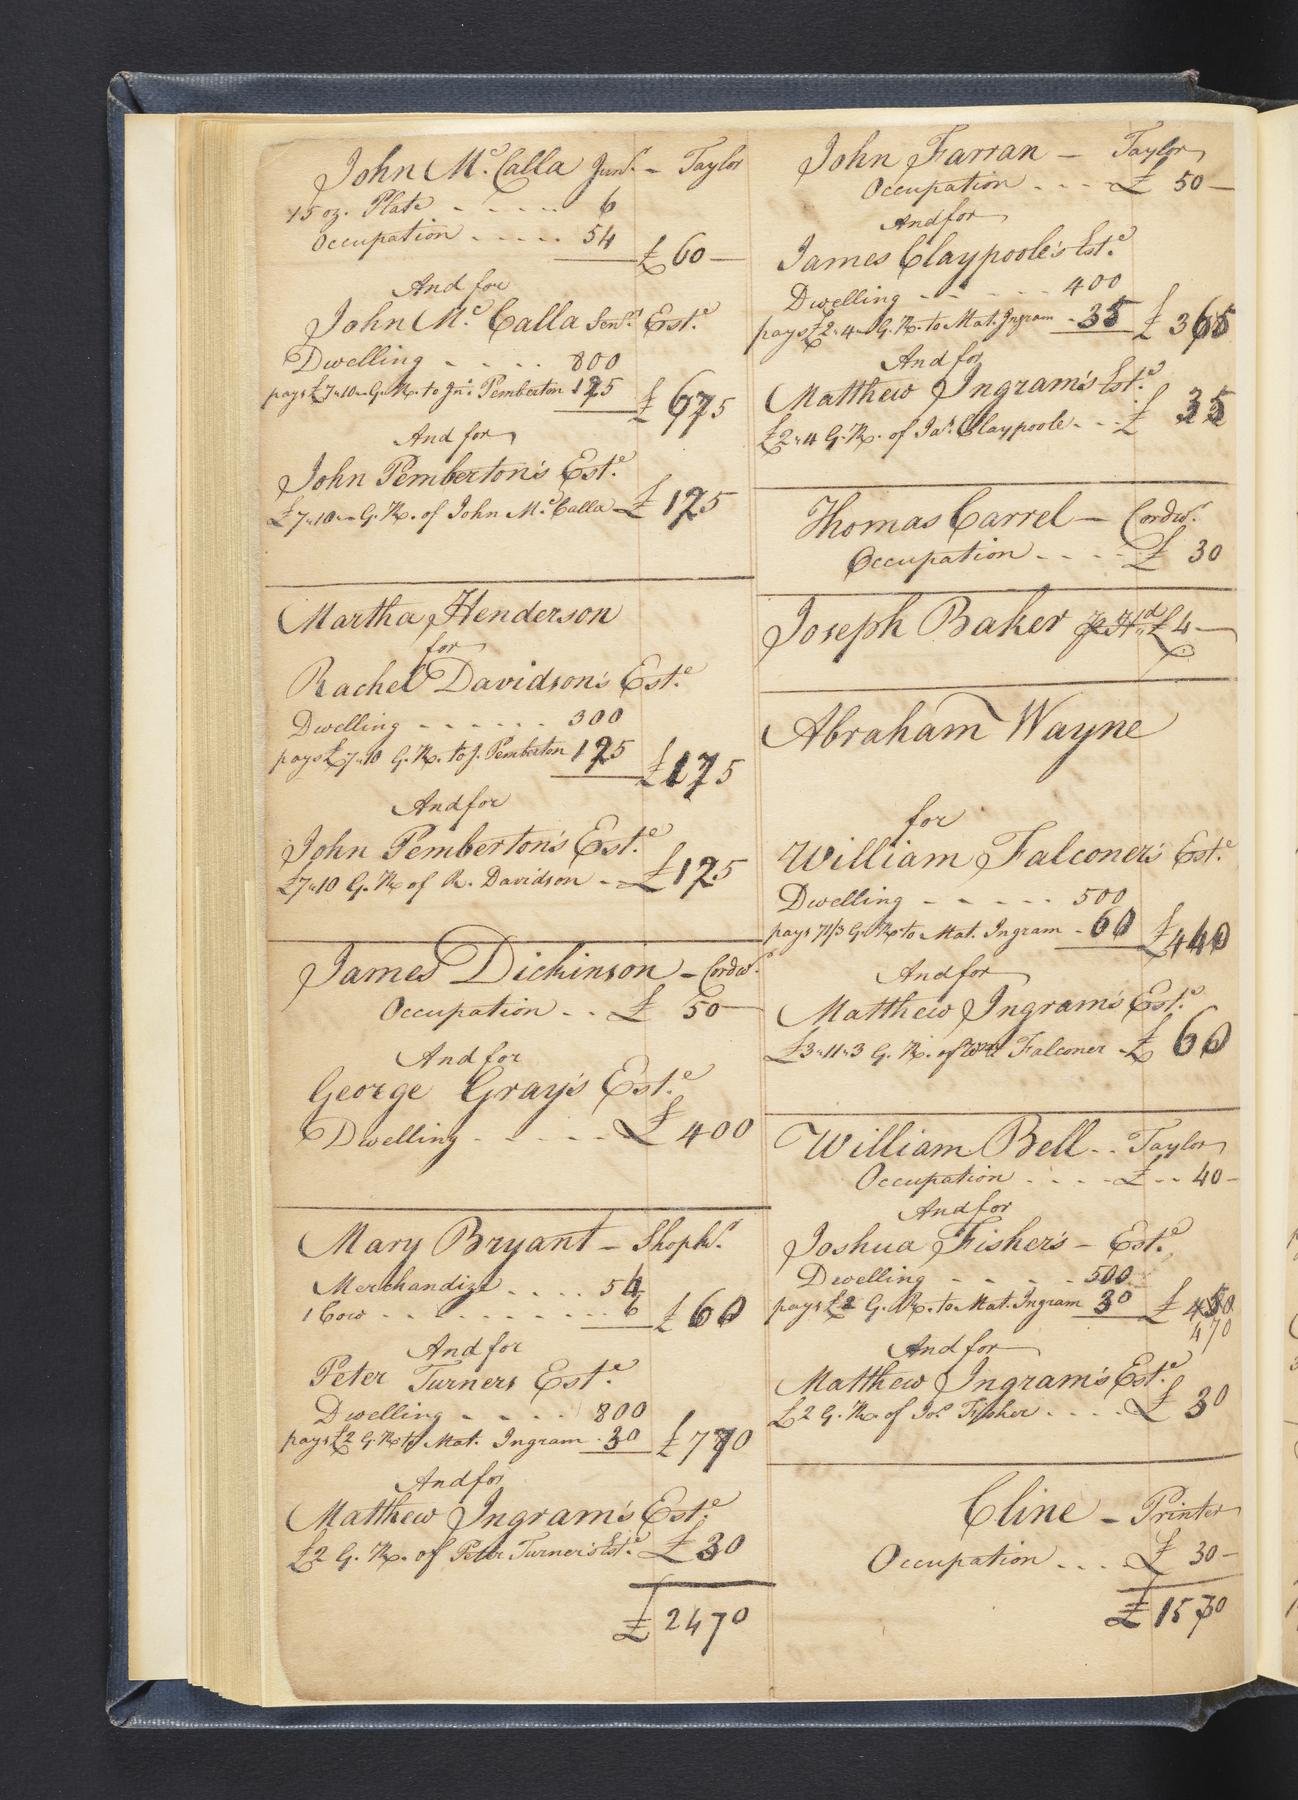 John Mc. Calla Junr. - Taylor
15 oz. Plate - - - - - 6
Occupation - - - - - 54 £ 60 -
And for
John Mc. Calla Senr. Este.
Dwelling - - - - 800
pays £7„10„- G. R. to Jno. Pemberton 125 £ 675
And for
John Pemberton's Este.
£7„10„- G. R. of John Mc. Calla - £ 125
Martha Henderson
for
Rachel Davidson's Este.
Dwelling - - - - - - 300
pays £7„10 G. R. to J. Pemberton 125 £ 175
And for
John Pemberton's Este.
£7„10 G. R. of R. Davidson - £ 125
James Dickinson - Cordwr.
Occupation - - £ 50 -
And for
George Gray's Este.
Dwelling - - - - - £ 400
Mary Bryant - Shopkr.
Merchandize - - - - 54
1 Cow - - - - - - - - 6 £ 60
And for
Peter Turners Este.
Dwelling - - - - 800
pays £2 G. R. to Mat. Ingram - 30 £ 770
And for
Matthew Ingram's Este.
£2 G. R. of Peter Turner's Este. £ 30
£ 2470
John Farran - Taylor
Occupation - - - - £ 50 -
And for
James Claypoole's Este.
Dwelling - - - - - 400
pays £2„4„- G. R. to Mat. Ingram - 35 £ 365
And for
Matthew Ingram's Este.
£2„4 G. R. of Jas. Claypoole - - £ 35
Thomas Carrel - Cordwr.
Occupation - - - - £ 30
Joseph Baker £ 4 -
Abraham Wayne
for
William Falconer's Este.
Dwelling - - - - - 500
pays 71/3 G. R. to Mat. Ingram - 60 £ 440
And for
Matthew Ingram's Este.
£3„11„3 G. R. of Wm. Falconer - £ 60
William Bell - - Taylor
Occupation - - - - £ - - 40 -
And for
Joshua Fisher's - Este.
Dwelling - - - - - 500
pays £2 G. R. to Mat. Ingram 30 £
470
And for
Matthew Ingram's Este.
£2 G. R. of Jos. Fisher - - - - £ 30
Cline - Printer
Occupation - - - £ 30 -
£ 1530